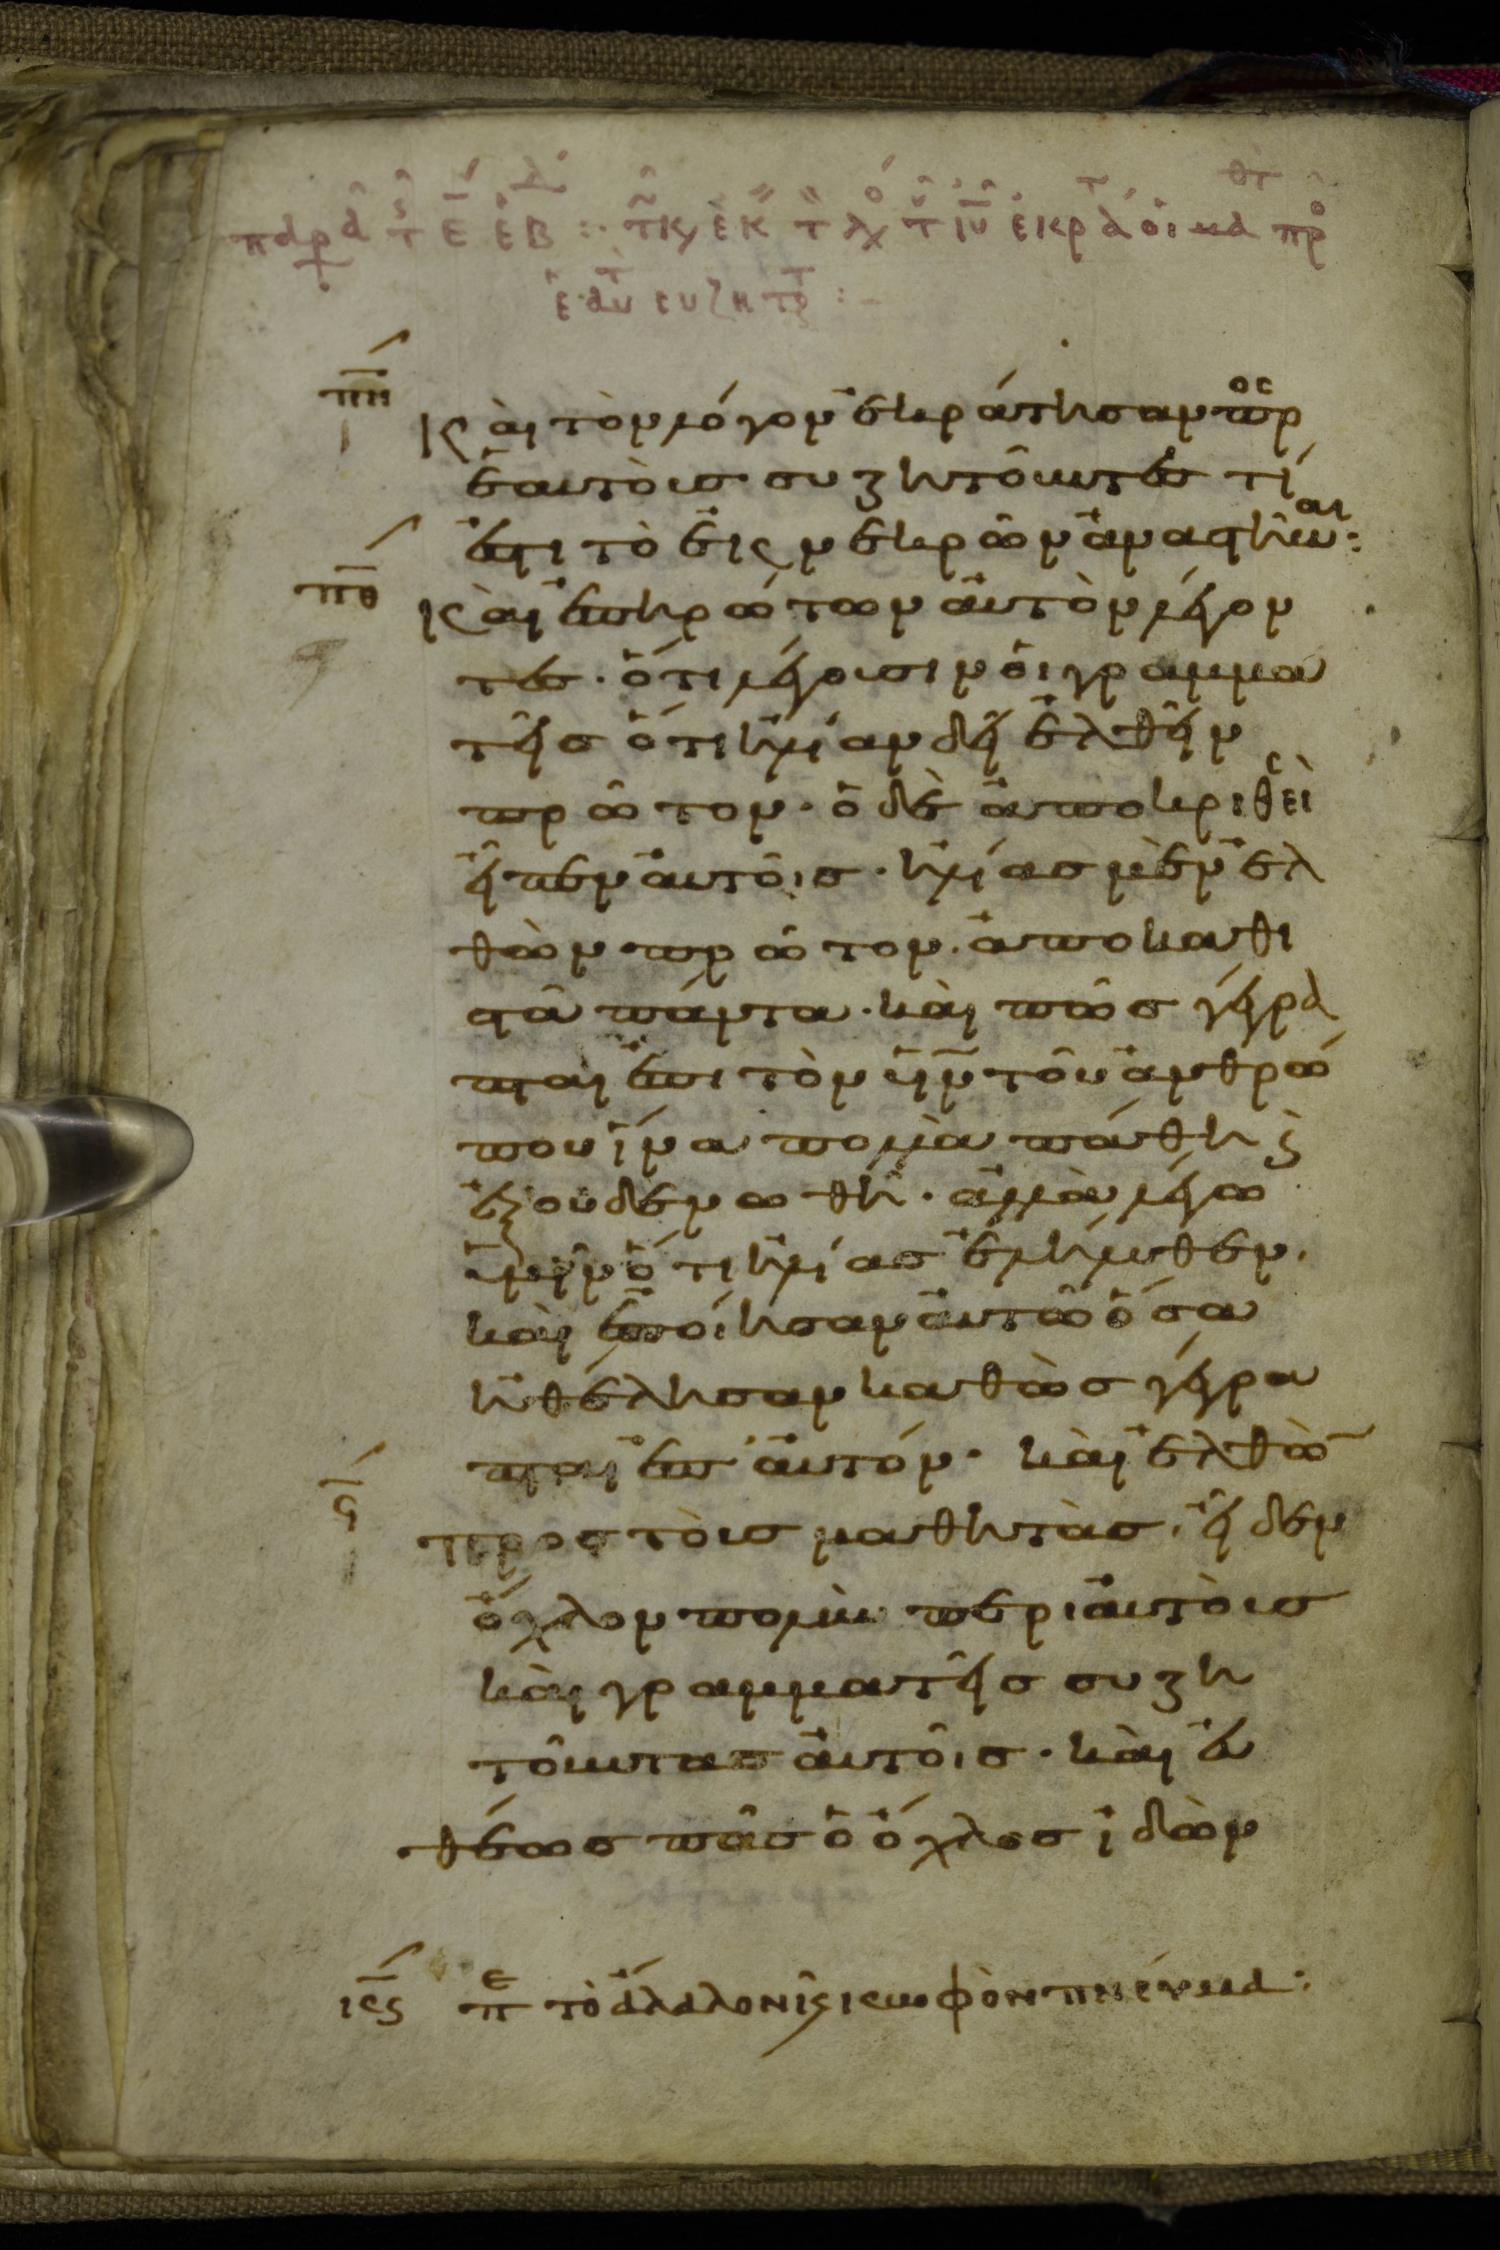 πη
Κὰι τὸν λόγον ἐκράτησαν προς
ἑαυτὸυσ συζητοῦντεσ τί
ἐστι τὸ ἐις νεκρῶν ἀναστῆναι:
πθ
Κὰι ἐπηρώτων ἀυτὸν λέγον
τεσ. ὅτι λέγουσιν ὁι γραμμα
τεῖσ ὅτι ἠλίαν δεῖ ἐλθεῖν
πρῶτον. ὁ δὲ ἀποκριθεὶς
εἶπεν ἀυτοῖσ. ἠλίασ μὲν ἐλ
θὼν πρῶτον. ἀποκαθι
στᾶ πάντα. κὰι πῶσ γέγρα
πται ἐπι τὸν υἱὸν τοῦ ἀνθρώ
που ἵνα πολλὰ πάθη ϛ
ἐξουδενωθῆ. ἀλλὰ λέγω
ὑμῖν ὅτι ἠλίασ ἐλήλυθεν.
κὰι ἐποίησαν ἀυτῶ ὅσα
ἠθέλησαν καθὼσ γέγρα
πται ἐπ' ἀυτόν. κὰι ἐλθὼ̄
ϟ
προς τὸυσ μαθητὰσ. εἶδεν
ὄχλον πολὺν περι ἀυτὸυσ
κὰι γραμματεῖσ συζη
τοῦντασ ἀυτοῖσ. κὰι ἐυ
θέωσ πᾶσ ὁ ὄχλοσ ἰδὼν
πε τὸ ἄλαλον ϗ κωφὸν πνέυμα: